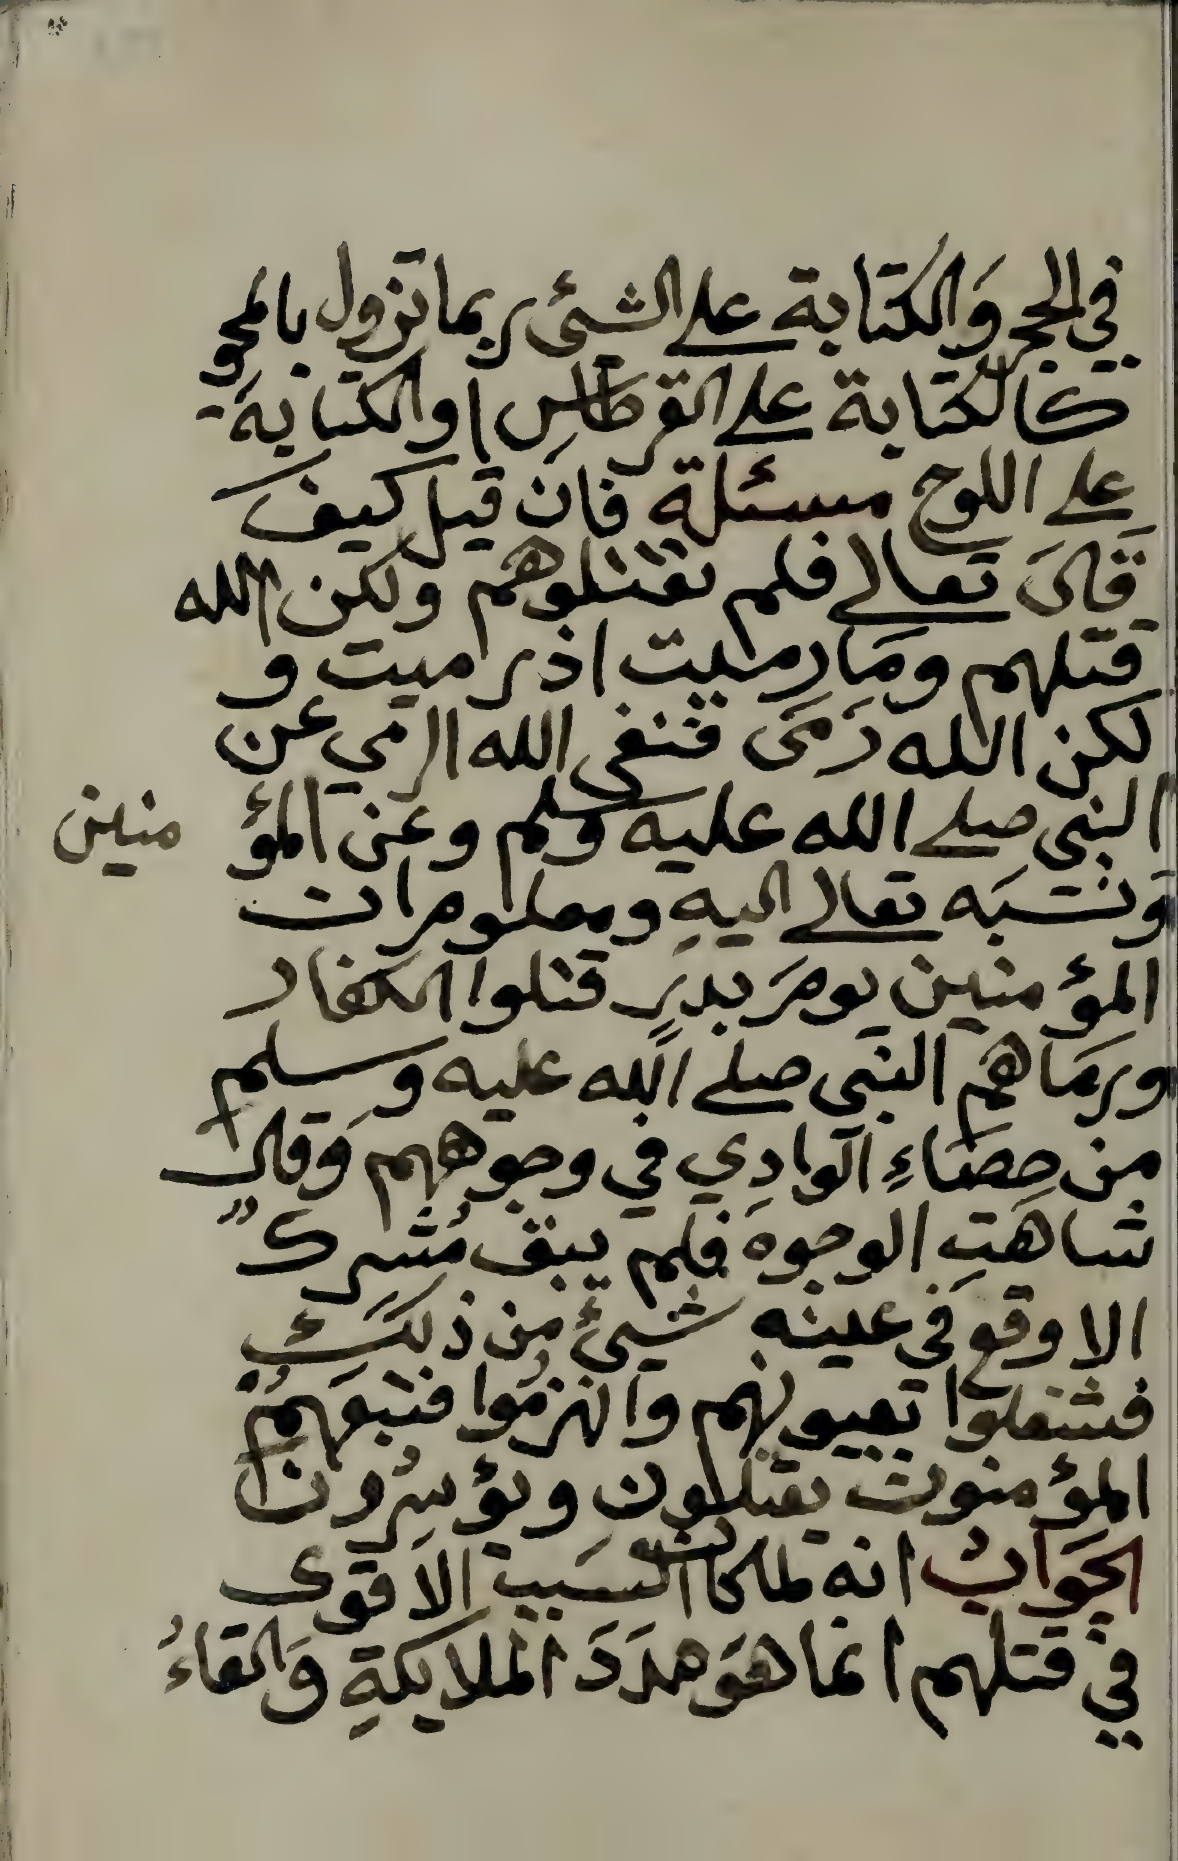 في الحجر وَالكتابة على الشئ ربما تزول بالمحو
كالكتابة على القرطاس او الكتابة
على اللوح مسئلة فان قيل كيف
قالَ تعالى فلم تقتلوهم ولكن الله
قتلهم ومَا رميت اذ رميت و
لكن الله رَمَى فنفى الله الرمي عن
النبي صلى الله عليه وسلم وعن المؤ منين
وَنسَبَه تعالى اليهِ ومعلوم ان
المؤمنين يومَ بدرٍ قتلوا الكفار
ورمَاهم النبي صلى الله عليه وسلم
من حصَاءِ الوادِي في وجوههم وَقال
شاهَتِ الوجوهَ فلم يبق مُشرك
الا وقع في عينه شيئ من ذلكَ
فشغلوا بعيونهم وانهزمُوا فتبعَهمُ
المؤمنون يقتلون ويؤسِرُون
الجَوابُ انه لما كانت السَبب الاقوى
في قتلهم انما هوَ مدَدَ الملايكةِ وَالقاءُ